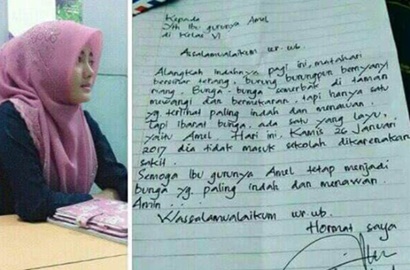 Kepada
Yth Ibu gurunya Amel
di kelas VI
Assalamualaikum wr. wb.
Alangkah indahnya pagi ini, matahari
bersinar terang, burung burungpun bernyanyi
riang. Bunga-bunga semerbak di taman
mewangi dan bermekaran, tapi hanya satu
yg terlihat paling indah dan menawan.
Tapi ibarat bunga, ada satu yang layu,
yaitu Amel. Hari ini, Kamis 26 Januari
2017 dia tidak masuk sekolah dikarenakan
sakit.
Semoga Ibu gurunya Amel tetap menjadi
bunga yg paling indah dan menawan.
Amin...
Wassalamwalaikum wr. wb.
Hormat saya